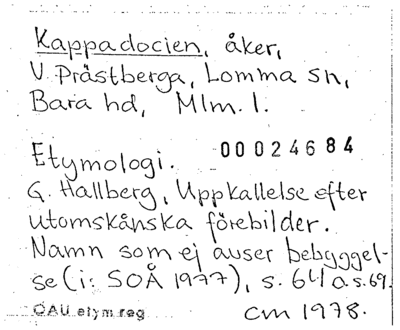 Kappadocien, åker,
V. Prästberga, Lomma sn,
Bara hd, Mlm. l.
Etymologi. 00024684
G. Hallberg, Uppkallelse efter
utomskånska förebilder.
Namn som ej avser bebyggel-
se (i: SOÅ 1977), s. 64 o. s. 69.
OAU etym reg CM 1978.